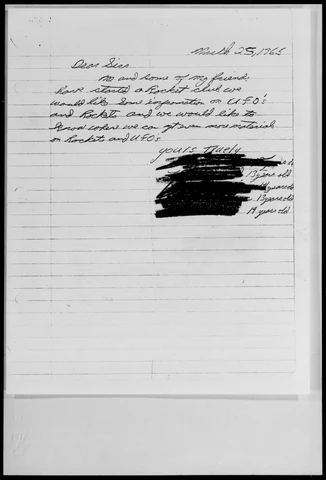 March 25, 1965
Dear Sirs
Me and some of my friends
have started a Rocket club we
would like some information on U.F.O's
and Rockets and we would like to
know where we can get even more material
on Rockets and UFO's
yours Truely
13 years old
years old
13 years old
14 years old